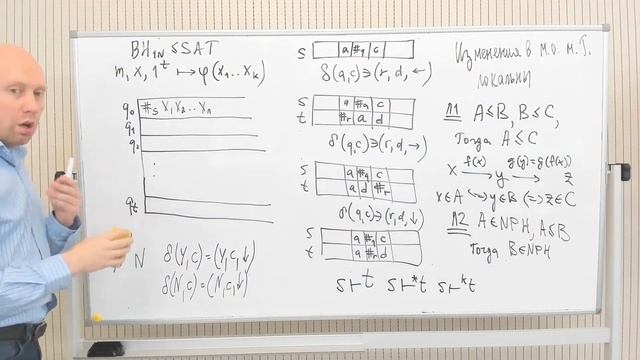 BH₁ₙ ≤ SAT
m, x, 1ᵗ ↦ φ(x₁...xₖ)
q₀ #ₛ x₁ x₂ ... xₙ
q₁
q₂
⋮
qₜ
N
δ(Y,c)=(Y,c,↓)
δ(N,c)=(N,c,↓)
s a #q c
δ(q,c)∋(r,d,←)
s a #q c
t #r a d
δ(q,c)∋(r,d,→)
s a #q c
t a d #r
δ(q,c)∋(r,d,↓)
s a #q c
t a #r d
s⊢t s⊢*t s⊢ᵏt
Изменения в м.о. м.Т.
локальны
Л1 A≤B, B≤C,
Тогда A≤C
x f(x)→ y g(y)=g(f(x))→ z
x∈A ⟺ y∈B ⟺ z∈C
Л2 A∈NPH, A≤B
Тогда B∈NPH